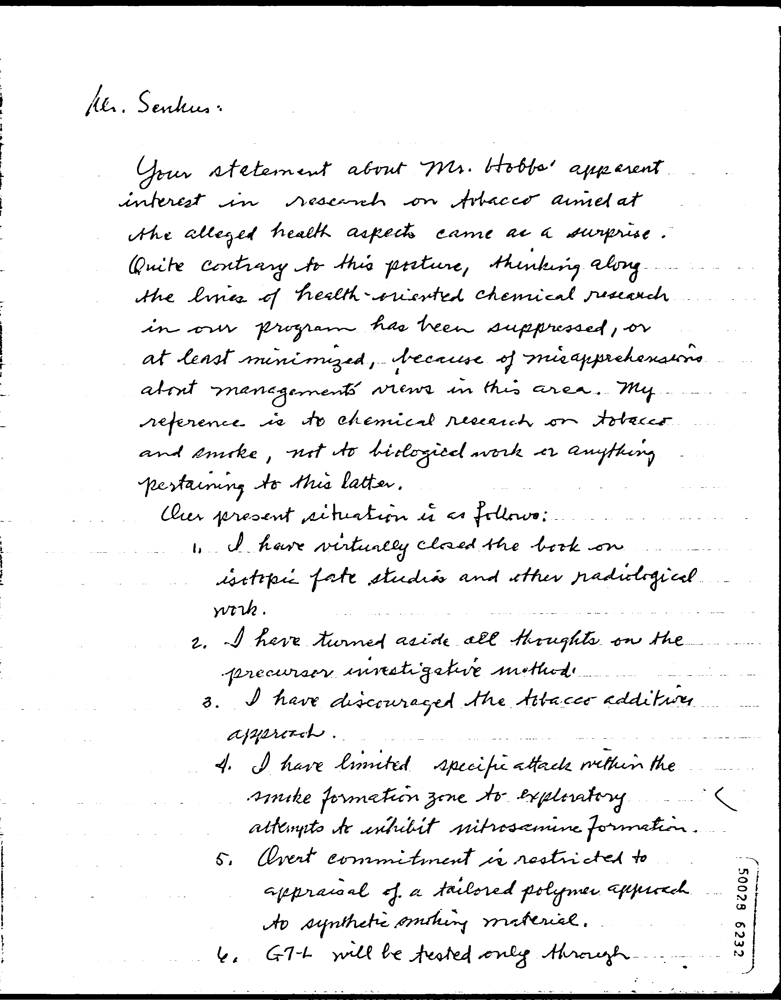 Mr. Senkus:
Your statement about Mr. Hobbs' apparent
interest in research on tobacco aimed at
the alleged health aspects came as a surprise.
Quite contrary to this posture, thinking along
the lines of health-oriented chemical research
in our program has been suppressed, or
at least minimized, because of misapprehensions
about managements' views in this area. My
reference is to chemical research on tobacco
and smoke, not to biological work or anything
pertaining to this latter.
Our present situation is as follows:
1. I have virtually closed the book on
isotopic fate studies and other radiological
work.
2. I have turned aside all thoughts on the
precursor investigative method.
3. I have discouraged the tobacco additives
approach.
4. I have limited specific attack within the
smoke formation zone to exploratory
attempts to inhibit nitrosamine formation.
5. Overt commitment is restricted to
appraisal of a tailored polymer approach
to synthetic smoking material.
6. G7-L will be tested only through
50028 6232